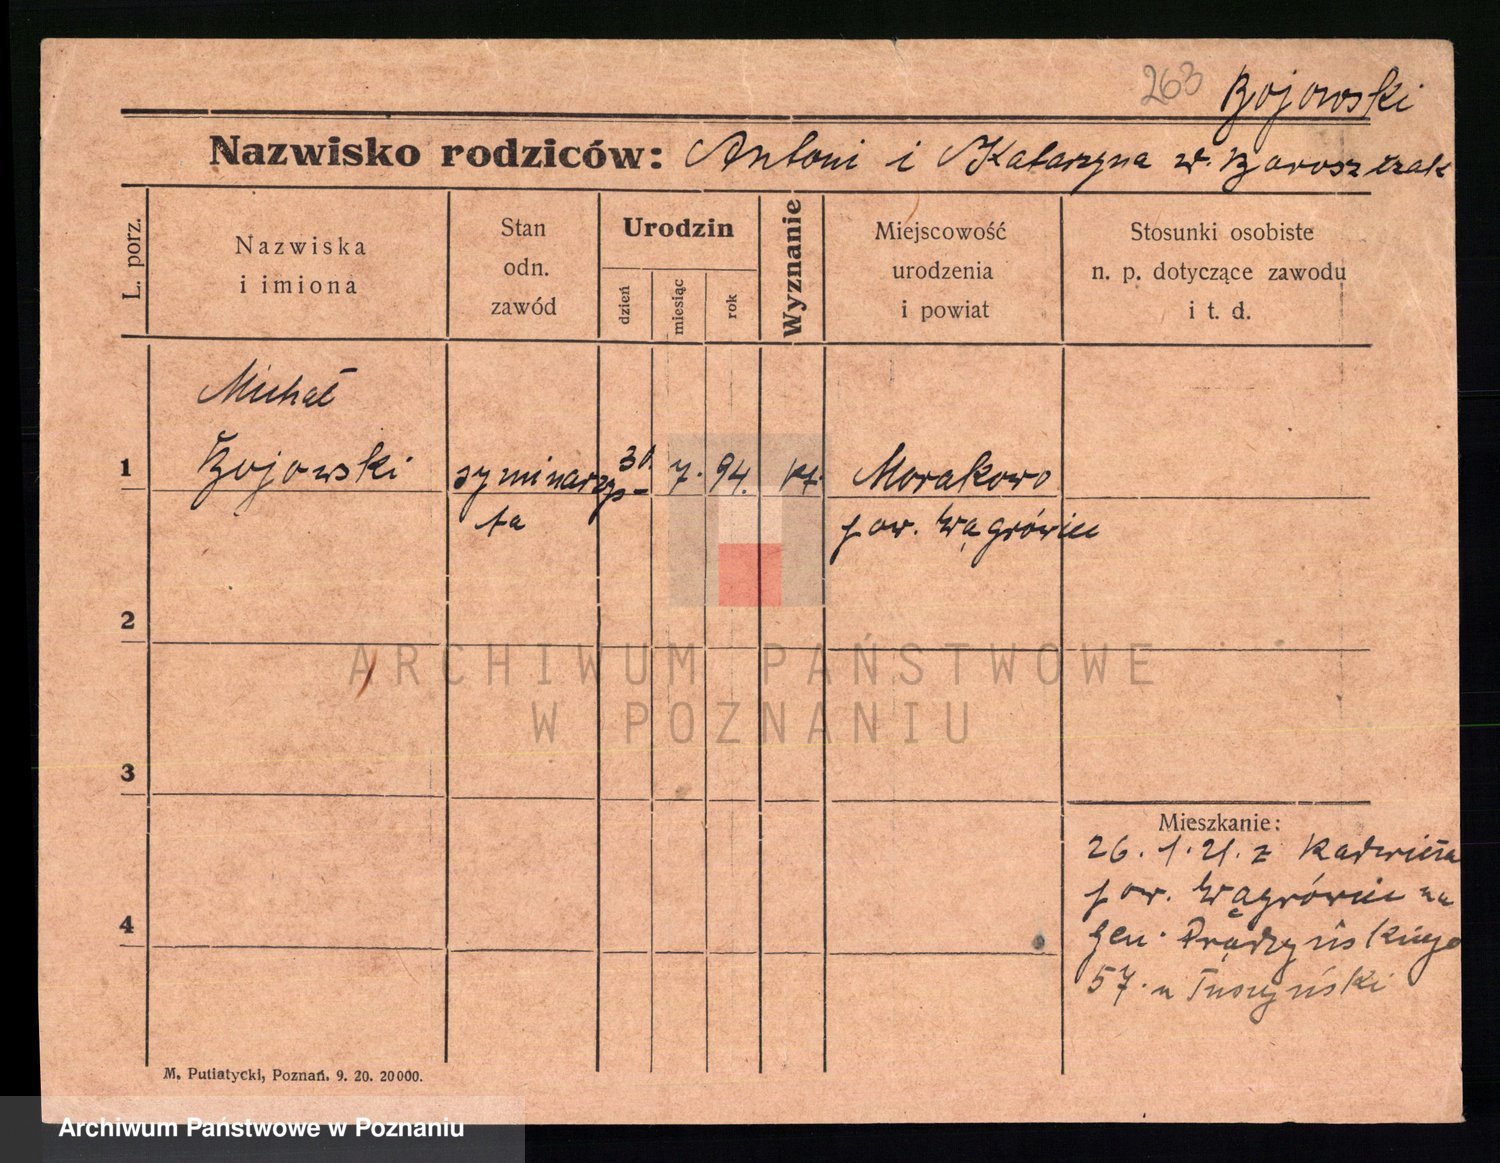 263 Bojowski
Nazwisko rodziców: Antoni i Katarzyna w.
L. porz.
Nazwiska
i imiona
Stan
odn.
zawód
Urodzin
dzień
miesiąc
rok
Wyznanie
Miejscowość
urodzenia
i powiat
Stosunki osobiste
n. p. dotyczące zawodu
i t. d.
Michał
1 Bojowski syminarzys- 7. 94. kt. Morakowo
ta pow. Wągrówiec
2
ARCHIWUM PAŃSTWOWE
W POZNANIU
3
Mieszkanie:
26. 1. 21. z
pow. Wągrówiec na
4 gen. Prądzyńskiego
57. u Tuszyński
M. Putiatycki, Poznań. 9. 20. 20000.
Archiwum Państwowe w Poznaniu